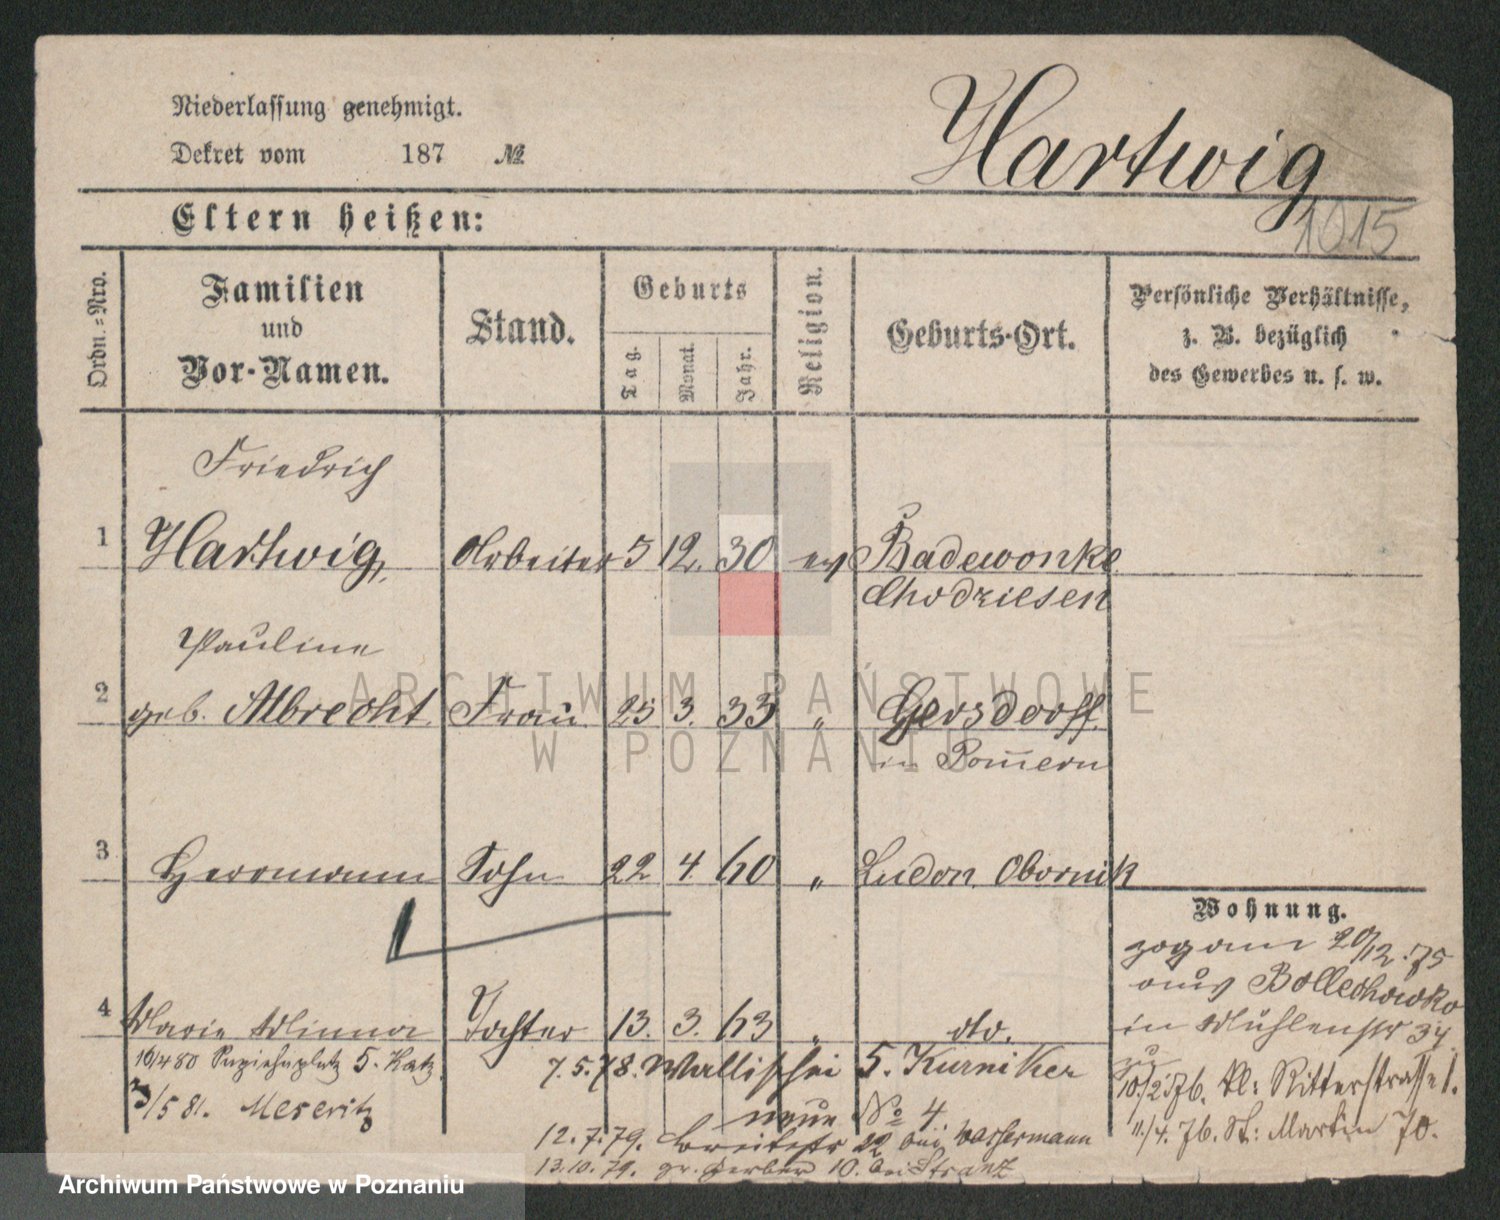 Niederlassung genehmigt.
Dekret vom 187 №
Hartwig
1015
Eltern heißen:
Ordn.=Nro.
Familien
und
Vor-Namen.
Stand.
Geburts
Tag.
Monat.
Jahr.
Religion.
Geburts-Ort.
Persönliche Verhältnisse,
z. B. bezüglich
des Gewerbes u. s. w.
Friedrich
1 Hartwig, Arbeiter 5 12. 30 ev Badewonke
Chodziesen
Pauline
2 geb. Albrecht Frau 25 3. 33 " Gersdorff
in Pommern
3 Herrmann Sohn 22 4 60 " Ludon Obornik
Wohnung.
zog am 20/12. 75
aus Bollechowko
in Mühlenstr 34
4 Marie Minna Tochter 13. 3. 63 " dto.
zu
10./2. 76. kl: Ritterstrasse 1.
11./4. 76. St: Martin 70.
7.5.78. Wallischei 5. Kurniker
neue № 4
12.7.79. Breitestr 22 bei Wassermann
13.10.79. gr. Gerber 10. bei Stranz
10/4 80 5. Katz
3/5 81. Meseritz
ARCHIWUM PAŃSTWOWE
W POZNANIU
Archiwum Państwowe w Poznaniu